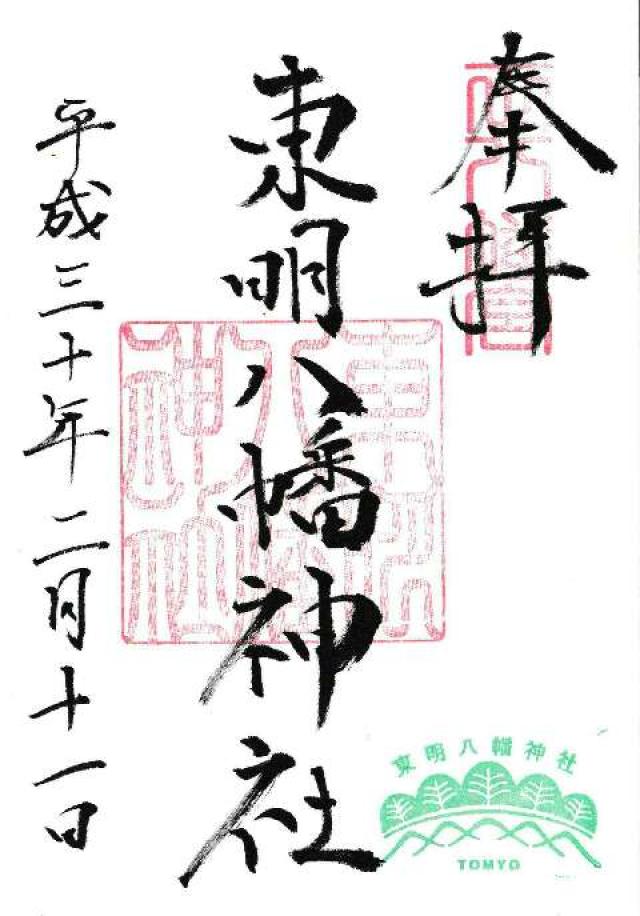 奉拝
東明八幡神社
平成三十年二月十一日
東明八幡神社
TOMYO